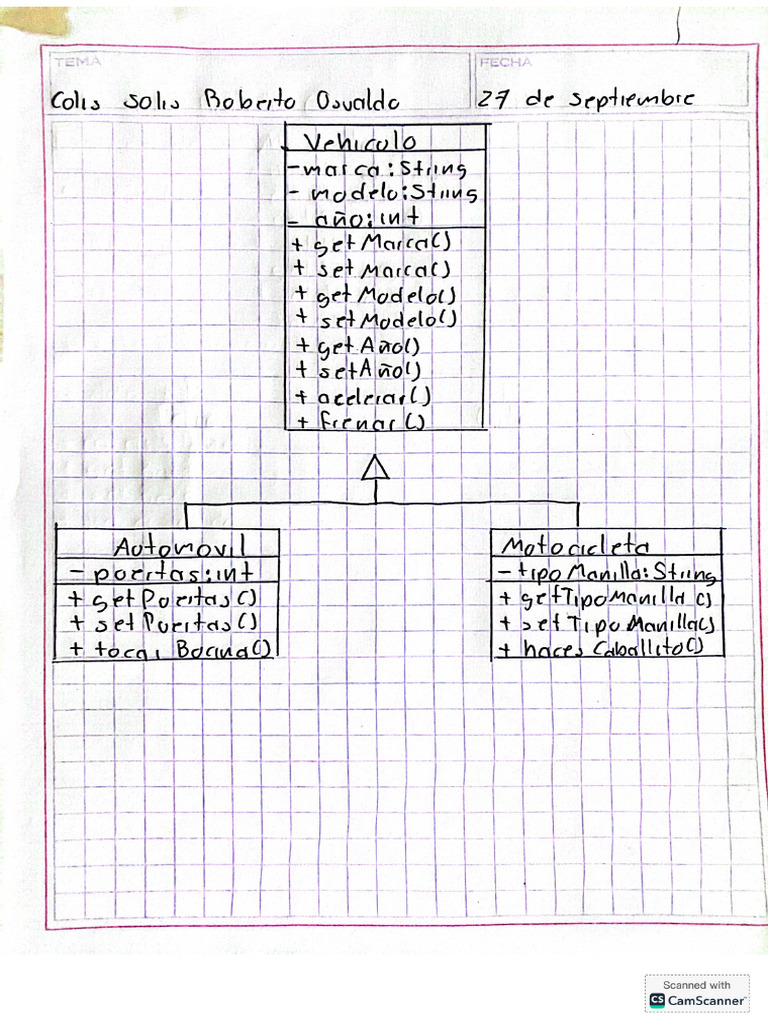 TEMA
FECHA
Colis Solis Roberto Osvaldo
27 de septiembre
Vehiculo
- marca: String
- modelo: String
- año: int
+ getMarca()
+ setMarca()
+ getModelo()
+ setModelo()
+ getAño()
+ setAño()
+ acelerar()
+ frenar()
Automovil
- puertas: int
+ getPuertas()
+ setPuertas()
+ tocar Bocina()
Motocicleta
- tipoManilla: String
+ getTipoManilla()
+ setTipoManilla()
+ hacer Caballito()
Scanned with
CS CamScanner